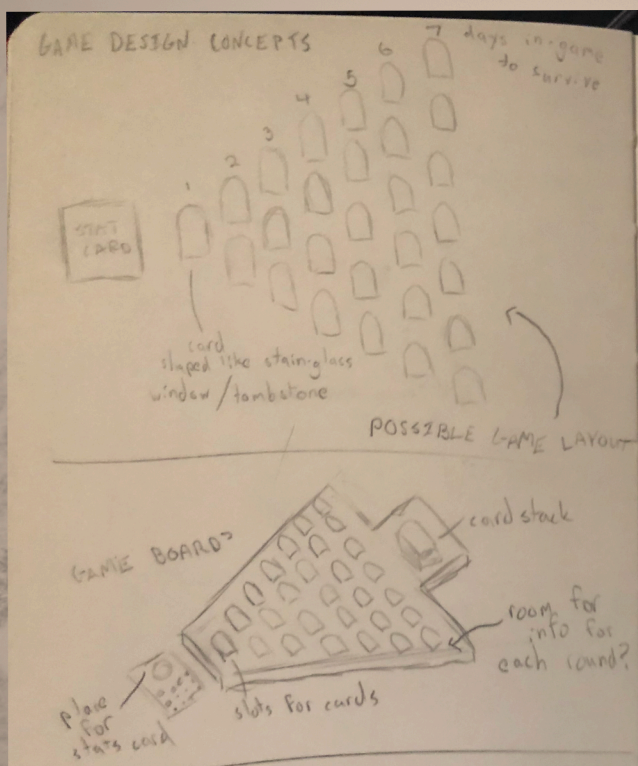 GAME DESIGN CONCEPTS
1 2 3 4 5 6 7
days in-game
to survive
STAT
CARD
card
shaped like stain-glass
window/tombstone
POSSIBLE GAME LAYOUT
GAME BOARD?
card stack
room for
info for
each round?
slots for cards
place
for
stats card